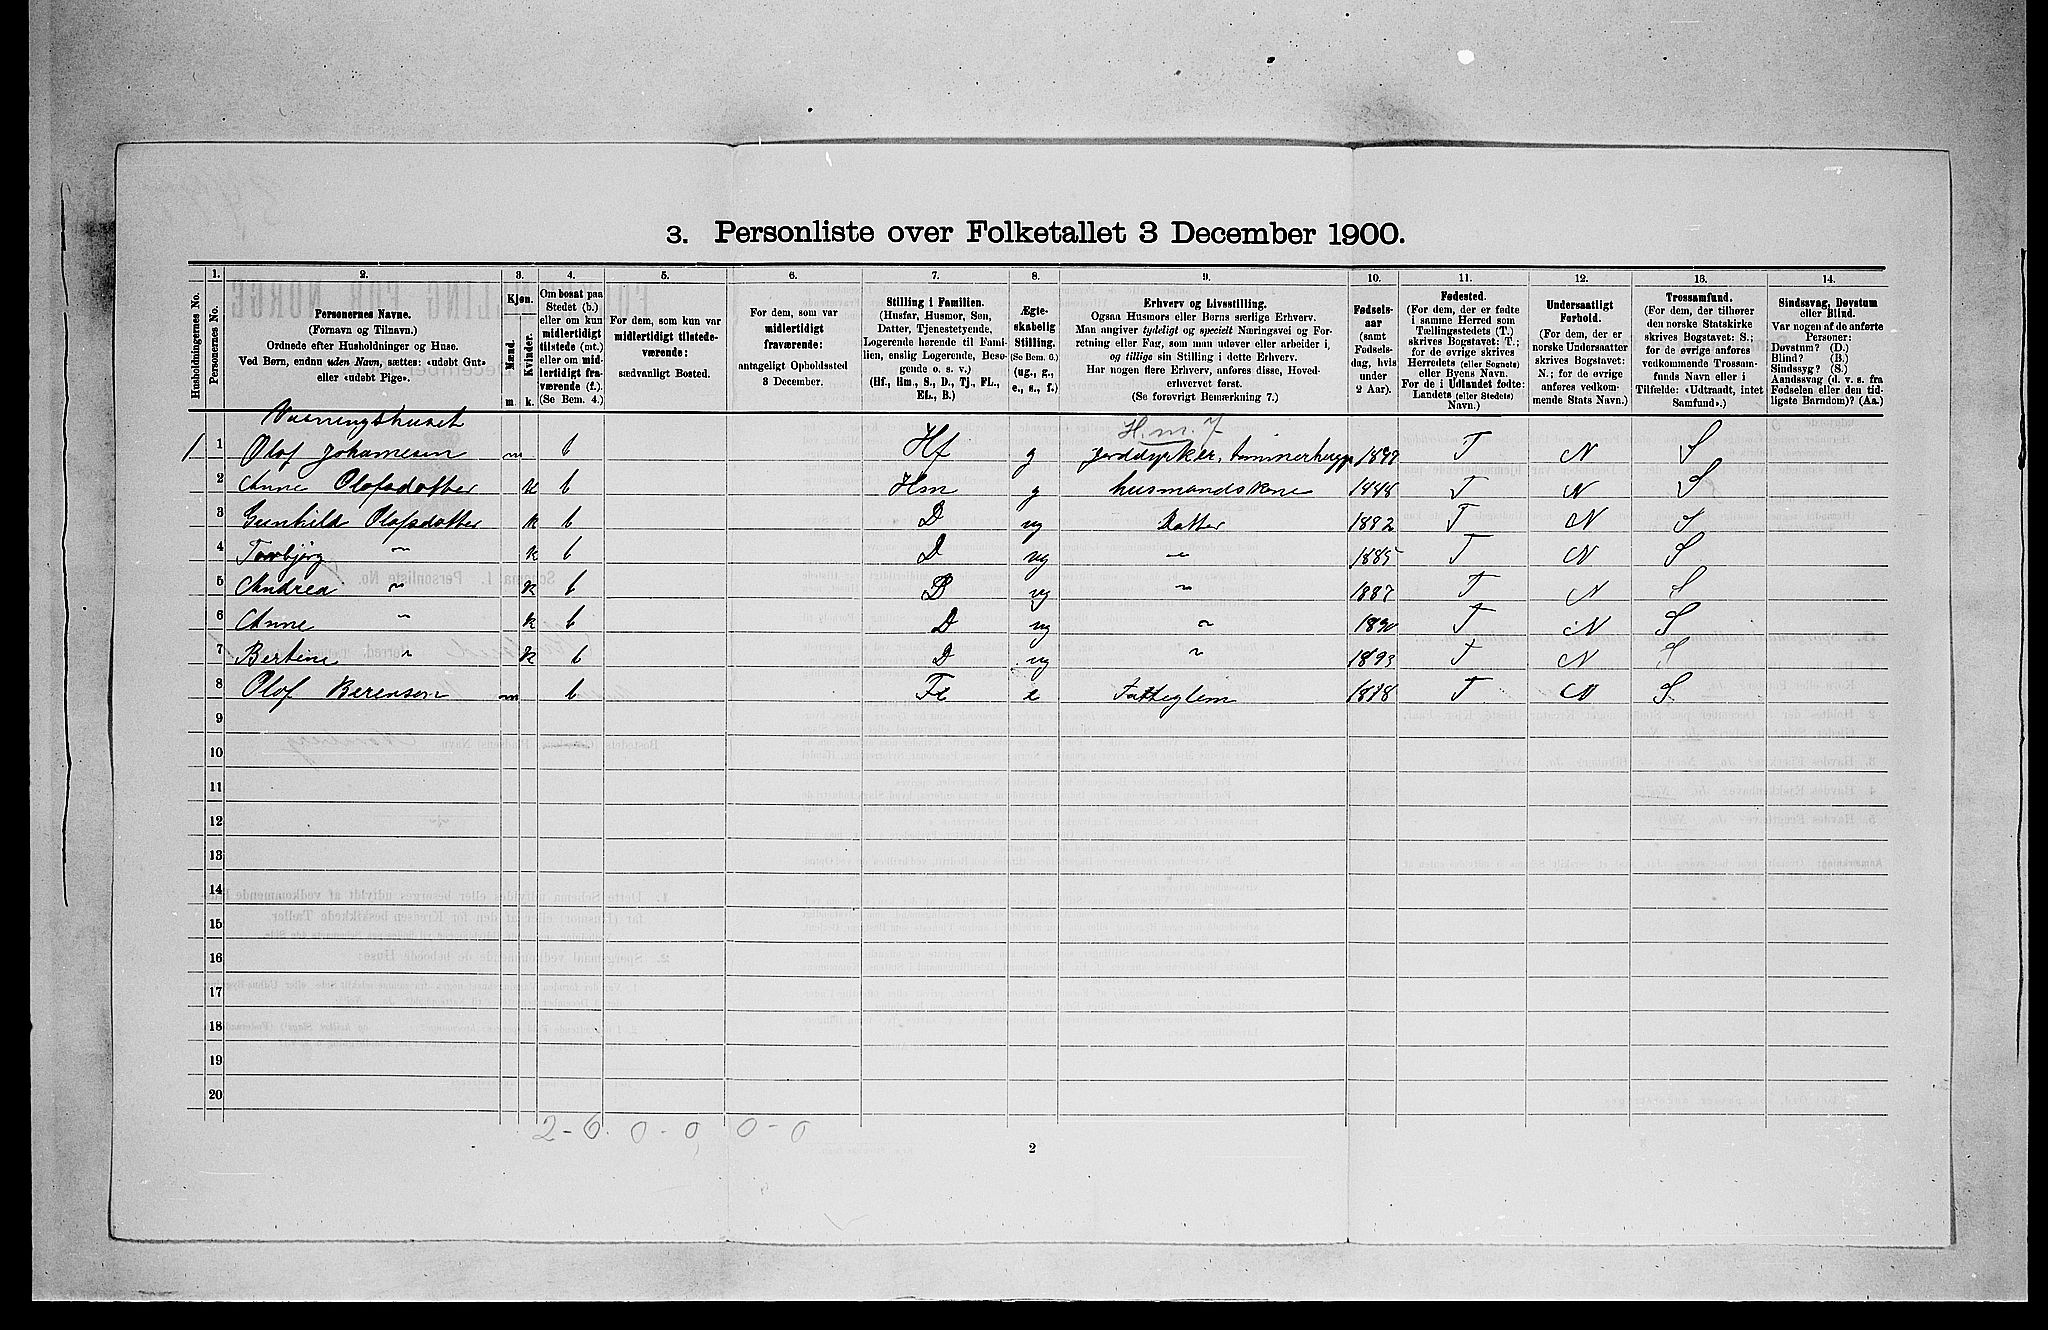 3. Personliste over Folketallet 3 December 1900.
1. 2. 3. 4. 5. 6. 7. 8. 9. 10. 11. 12. 13. 14.
Husholdningernes No.
Personernes No.
Personernes Navne.
(Fornavn og Tilnavn.)
Ordnede efter Husholdninger og Huse.
Ved Børn, endnu uden Navn, sættes: «udøbt Gut»
eller «udøbt Pige».
Kjøn.
Mænd.
Kvinder.
m. k.
Om bosat paa
Stedet (b.)
eller om kun
midlertidigt
tilstede (mt.)
eller om mid-
lertidigt fra-
værende (f.)
(Se Bem. 4.)
For dem, som kun var
midlertidigt tilstede-
værende:
sædvanligt Bosted.
For dem, som var
midlertidigt
fraværende:
antageligt Opholdssted
3 December.
Stilling i Familien.
(Husfar, Husmor, Søn,
Datter, Tjenestetyende,
Logerende hørende til Fami-
lien, enslig Logerende, Besø-
gende o. s. v.)
(Hf., Hm., S., D., Tj., FL.,
EL., B.)
Ægte-
skabelig
Stilling.
(Se Bem. 6.)
(ug., g.,
e., s., f.)
Erhverv og Livsstilling.
Ogsaa Husmors eller Børns særlige Erhverv.
Man angiver tydeligt og specielt Næringsvei og For-
retning eller Fag, som man udøver eller arbeider i,
og tillige sin Stilling i dette Erhverv.
Har nogen flere Erhverv, anføres disse, Hoved-
erhvervet først.
(Se forøvrigt Bemærkning 7.)
Fødsels-
aar
(samt
Fødsels-
dag, hvis
under
2 Aar).
Fødested.
(For dem, der er fødte
i samme Herred som
Tællingsstedets (T.)
skrives Bogstavet: T.;
for de øvrige skrives
Herredets (eller Sognets)
eller Byens Navn.
For de i Udlandet fødte:
Landets (eller Stedets)
Navn.)
Undersaatligt
Forhold.
(For dem, der er
norske Undersaatter
skrives Bogstavet:
N.; for de øvrige
anføres vedkom-
mende Stats Navn.)
Trossamfund.
(For dem, der tilhører
den norske Statskirke
skrives Bogstavet: S.;
for de øvrige anføres
vedkommende Trossam-
funds Navn eller i
Tilfælde: «Udtraadt, intet
Samfund».)
Sindssvag, Døvstum
eller Blind.
Var nogen af de anførte
Personer:
Døvstum? (D.)
Blind? (B.)
Sindssyg? (S.)
Aandssvag (d. v. s. fra
Fødselen eller den tid-
ligste Barndom)? (Aa.)
Vaaningshuset
H.m. 7
1 1 Olaf Johannesen m b Hf g jorddyrker, tømmerhugge T N S
2 Anne Olafsdatter k b Hm g husmandskone 1848 T N S
3 Gunhild Olafsdatter k b D ug Datter 1882 T N S
4 Torbjørg " k b D ug " 1885 T N S
5 Andrea " k b D ug " 1887 T N S
6 Anne " k b D ug " 1890 T N S
7 Bertine " k b D ug " 1893 T N S
8 Olaf Berensen m b Fl e Fattiglem 1818 T N S
9
10
11
12
13
14
15
16
17
18
19
20
2-6 0-0 0-0
2